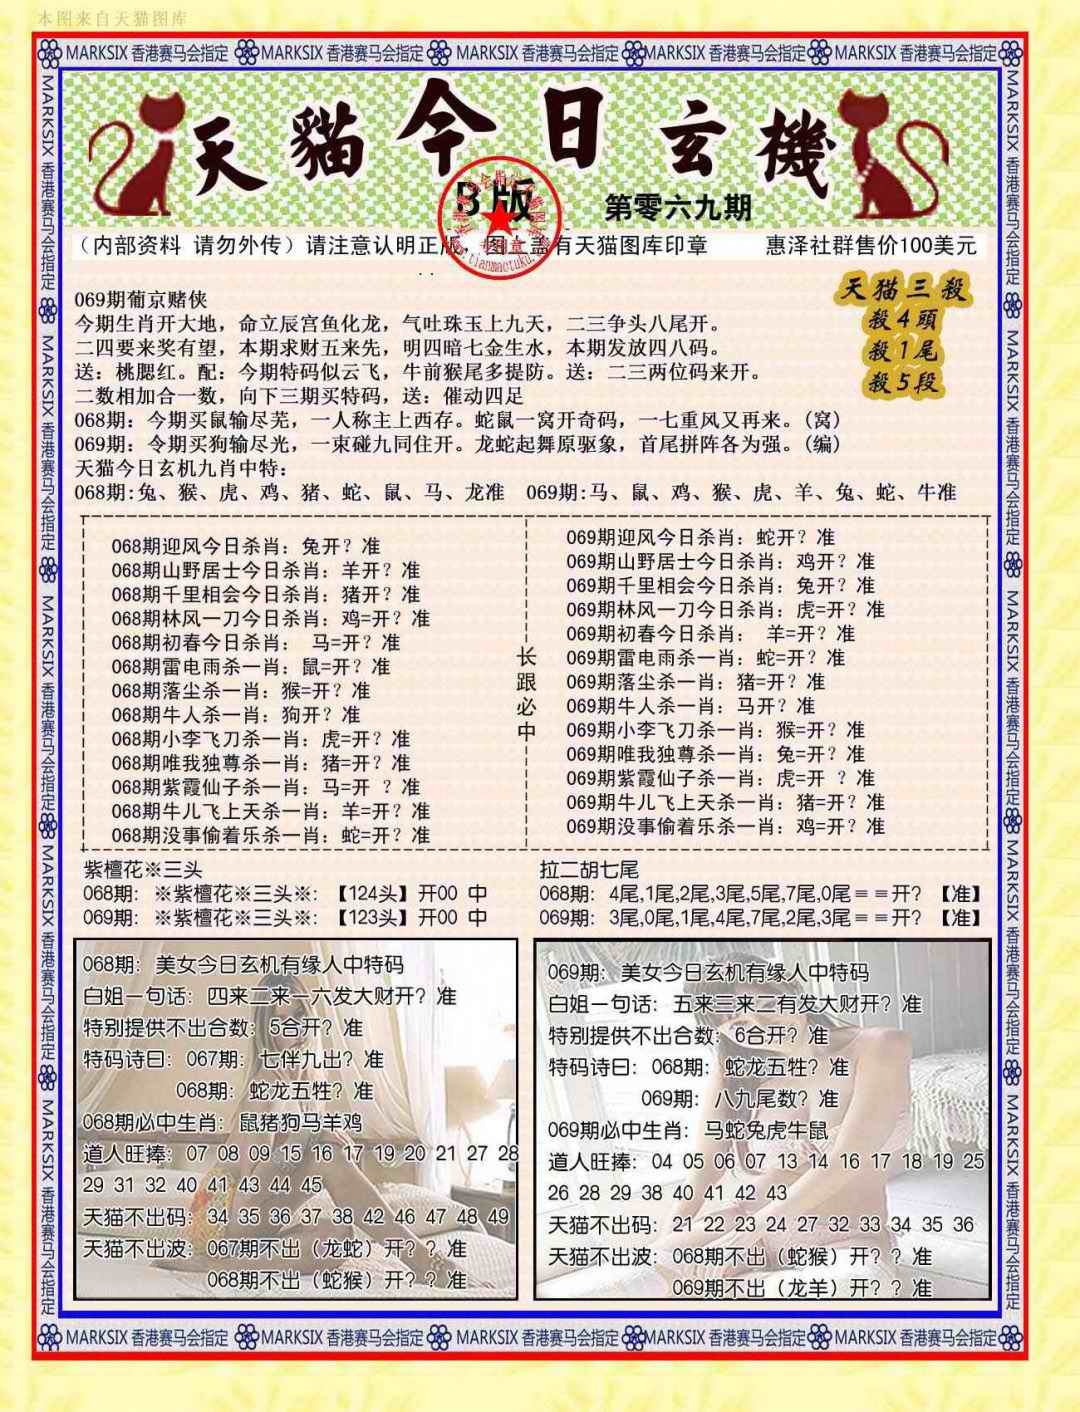 本图来自天猫图库
MARKSIX 香港赛马会指定 MARKSIX 香港赛马会指定 MARKSIX 香港赛马会指定 MARKSIX 香港赛马会指定 MARKSIX 香港赛马会指定
天貓今日玄機
B版
第零六九期
（内部资料 请勿外传）请注意认明正版，图上盖有天猫图库印章 惠泽社群售价100美元
天猫三殺
殺4頭
殺1尾
殺5段
069期葡京赌侠
今期生肖开大地，命立辰宫鱼化龙，气吐珠玉上九天，二三争头八尾开。
二四要来奖有望，本期求财五来先，明四暗七金生水，本期发放四八码。
送：桃腮红。配：今期特码似云飞，牛前猴尾多提防。送：二三两位码来开。
二数相加合一数，向下三期买特码，送：催动四足
068期：今期买鼠输尽芜，一人称主上西存。蛇鼠一窝开奇码，一七重风又再来。(窝)
069期：令期买狗输尽光，一束碰九同住开。龙蛇起舞原驱象，首尾拼阵各为强。(编)
天猫今日玄机九肖中特：
068期:兔、猴、虎、鸡、猪、蛇、鼠、马、龙准 069期:马、鼠、鸡、猴、虎、羊、兔、蛇、牛准
068期迎风今日杀肖：兔开？准
068期山野居士今日杀肖：羊开？准
068期千里相会今日杀肖：猪开？准
068期林风一刀今日杀肖：鸡=开？准
068期初春今日杀肖： 马=开？准
068期雷电雨杀一肖：鼠=开？准
068期落尘杀一肖：猴=开？准
068期牛人杀一肖：狗开？准
068期小李飞刀杀一肖：虎=开？准
068期唯我独尊杀一肖：猪=开？准
068期紫霞仙子杀一肖：马=开 ？准
068期牛儿飞上天杀一肖：羊=开？准
068期没事偷着乐杀一肖：蛇=开？准
长跟必中
069期迎风今日杀肖：蛇开？准
069期山野居士今日杀肖：鸡开？准
069期千里相会今日杀肖：兔开？准
069期林风一刀今日杀肖：虎=开？准
069期初春今日杀肖： 羊=开？准
069期雷电雨杀一肖：蛇=开？准
069期落尘杀一肖：猪=开？准
069期牛人杀一肖：马开？准
069期小李飞刀杀一肖：猴=开？准
069期唯我独尊杀一肖：兔=开？准
069期紫霞仙子杀一肖：虎=开 ？准
069期牛儿飞上天杀一肖：猪=开？准
069期没事偷着乐杀一肖：鸡=开？准
紫檀花※三头
068期：※紫檀花※三头※：【124头】开00 中
069期：※紫檀花※三头※：【123头】开00 中
拉二胡七尾
068期：4尾,1尾,2尾,3尾,5尾,7尾,0尾≡≡开？【准】
069期：3尾,0尾,1尾,4尾,7尾,2尾,3尾≡≡开？【准】
068期：美女今日玄机有缘人中特码
白姐一句话：四来二来一六发大财开？准
特别提供不出合数：5合开？准
特码诗曰：067期：七伴九出？准
068期：蛇龙五牲？准
068期必中生肖：鼠猪狗马羊鸡
道人旺捧：07 08 09 15 16 17 19 20 21 27 28
29 31 32 40 41 43 44 45
天猫不出码：34 35 36 37 38 42 46 47 48 49
天猫不出波：067期不出（龙蛇）开？？准
068期不出（蛇猴）开？？准
069期：美女今日玄机有缘人中特码
白姐一句话：五来三来二有发大财开？准
特别提供不出合数：6合开？准
特码诗曰：068期：蛇龙五牲？准
069期：八九尾数？准
069期必中生肖：马蛇兔虎牛鼠
道人旺捧：04 05 06 07 13 14 16 17 18 19 25
26 28 29 38 40 41 42 43
天猫不出码：21 22 23 24 27 32 33 34 35 36
天猫不出波：068期不出（蛇猴）开？？准
069期不出（龙羊）开？？准
MARKSIX 香港赛马会指定 MARKSIX 香港赛马会指定 MARKSIX 香港赛马会指定 MARKSIX 香港赛马会指定 MARKSIX 香港赛马会指定